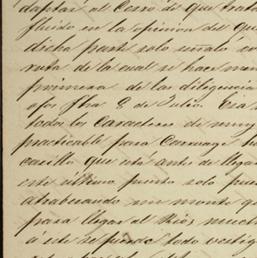 daptar al Cerro de que trata
fluido en la opinion del que
dicha parte solo señalo con
ruta de la cual se hace men
primera de las diligencia
ojos fha 8 de Julio. Era
todos los Caracteres de muy
practicable para Carruage ha
cerillo que está antes de llegar
este último punto solo pue
atrabesando un monte qu
para llegar al Rio, much
á este se pierde todo vestig